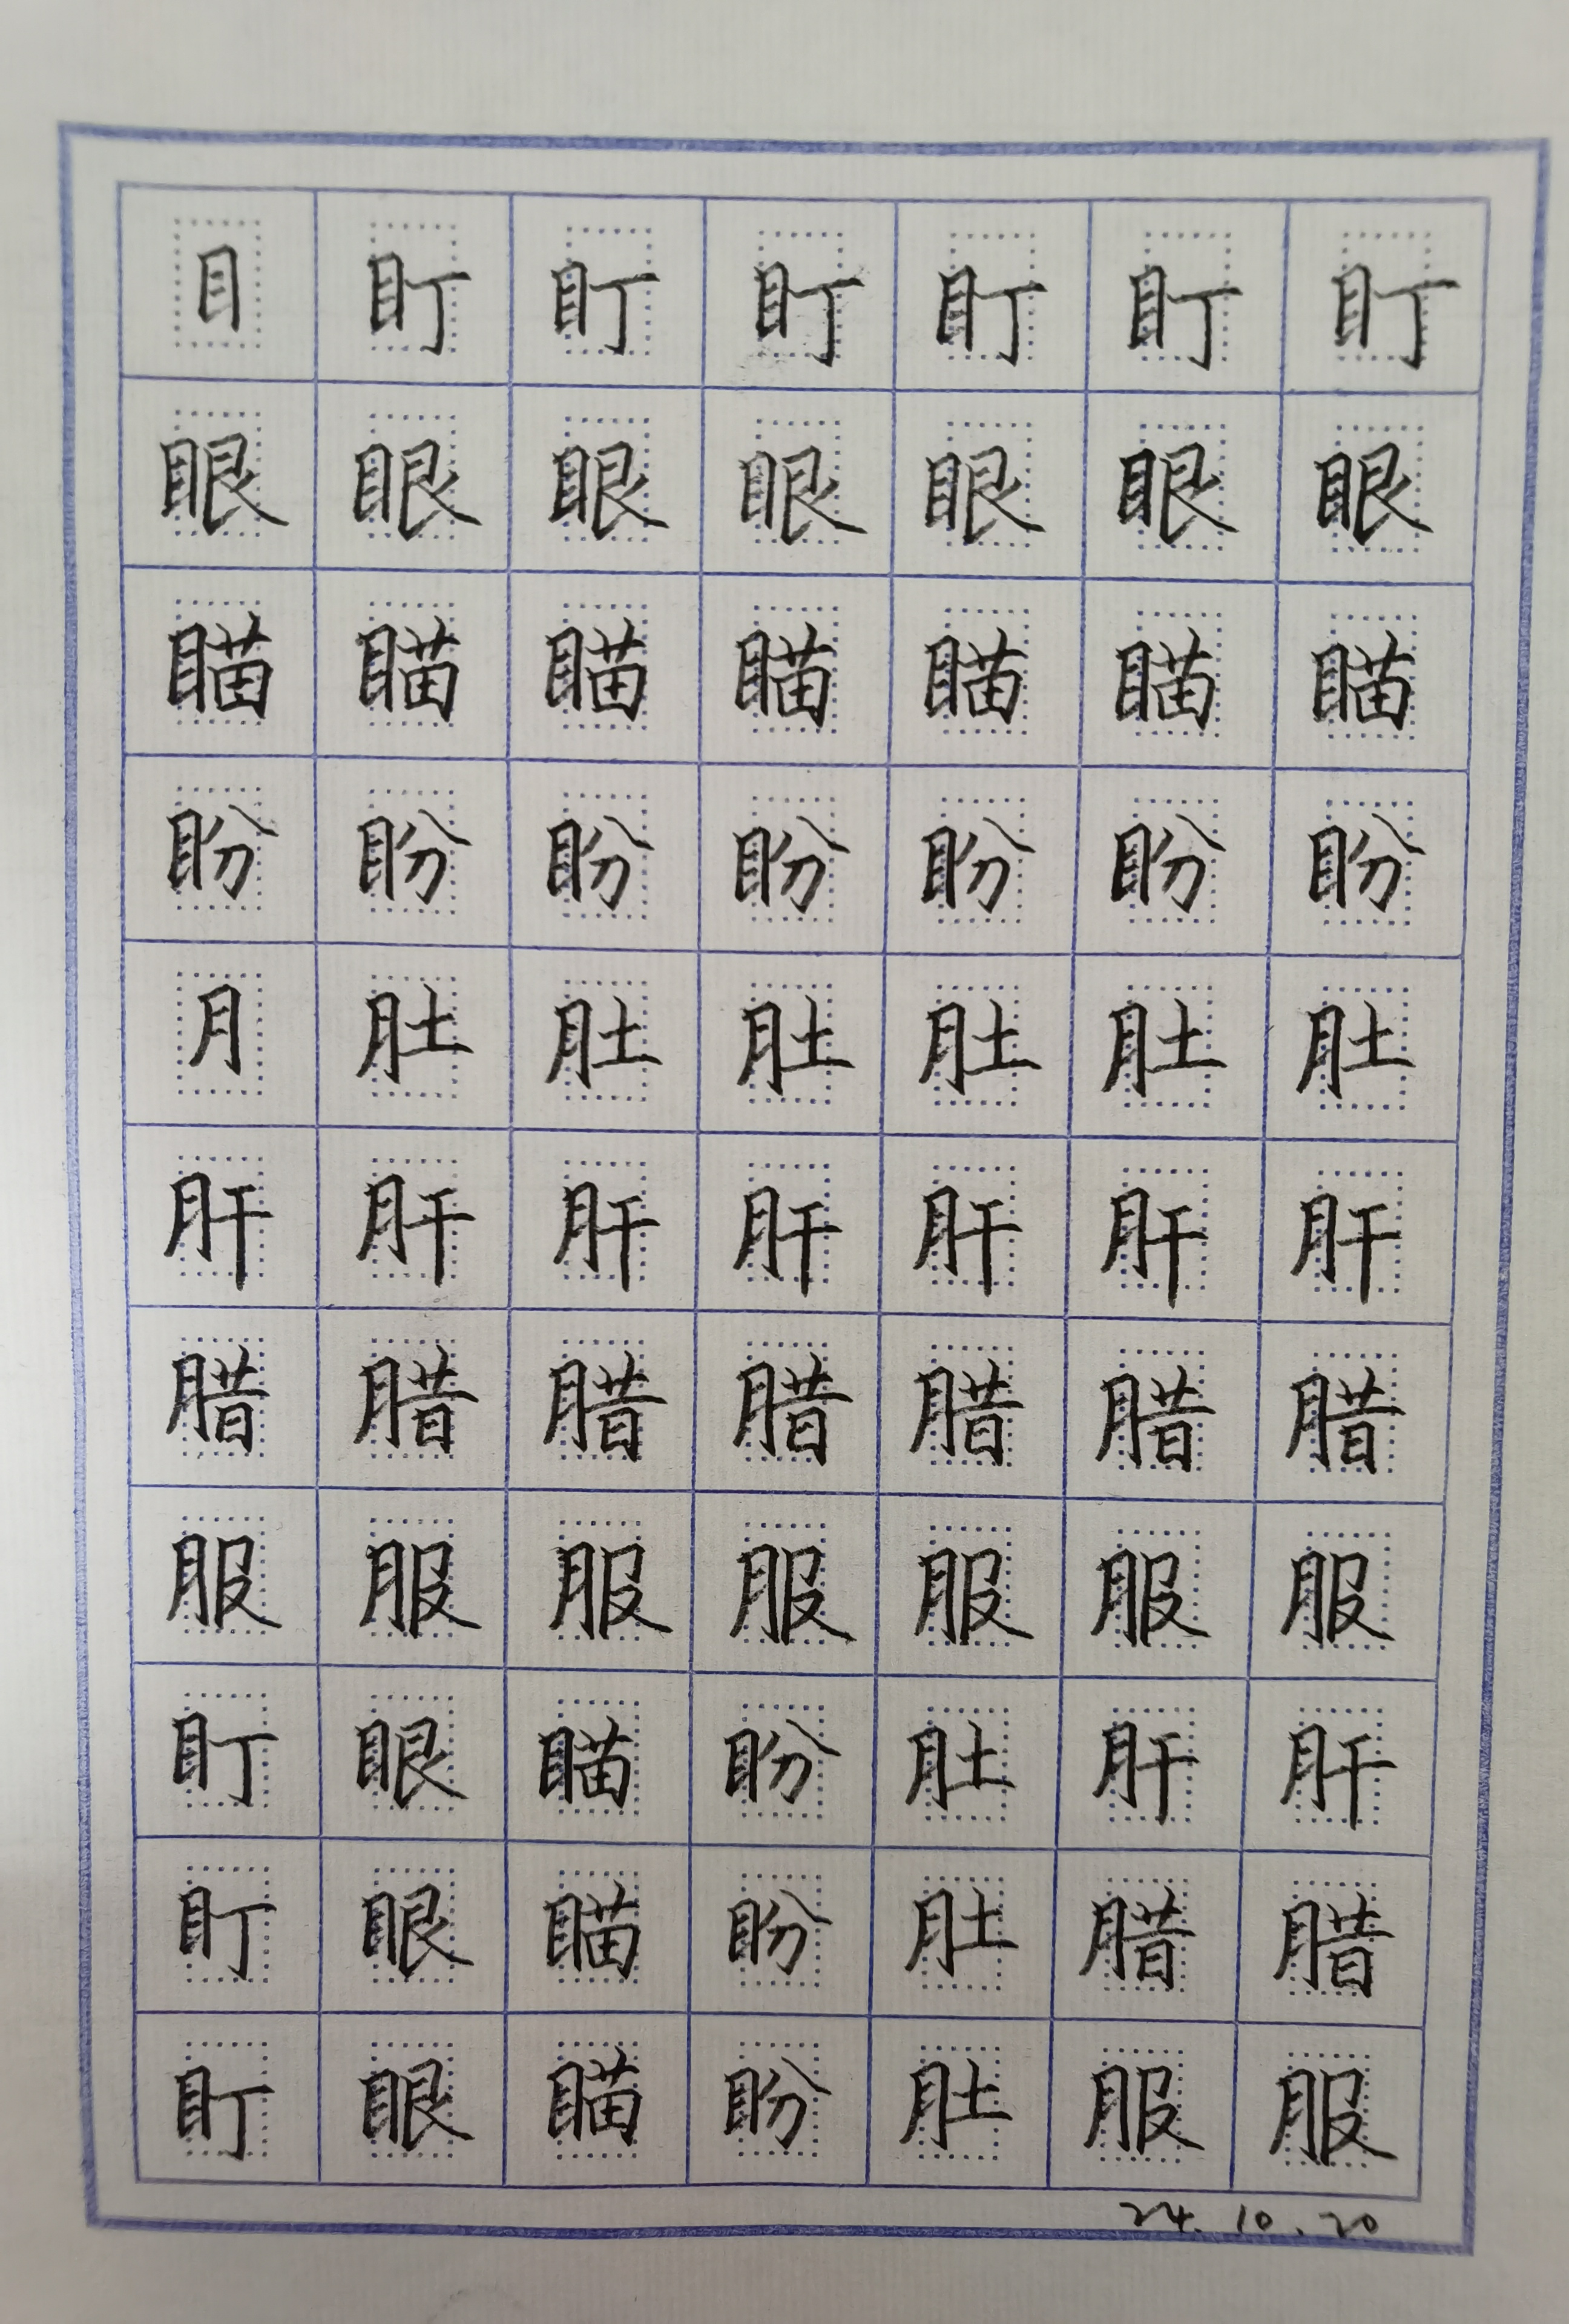 目盯盯盯盯盯盯
眼眼眼眼眼眼眼
瞄瞄瞄瞄瞄瞄瞄
盼盼盼盼盼盼盼
月肚肚肚肚肚肚
肝肝肝肝肝肝肝
腊腊腊腊腊腊腊
服服服服服服服
盯眼瞄盼肚肝肝
盯眼瞄盼肚腊腊
盯眼瞄盼肚服服
24.10.20